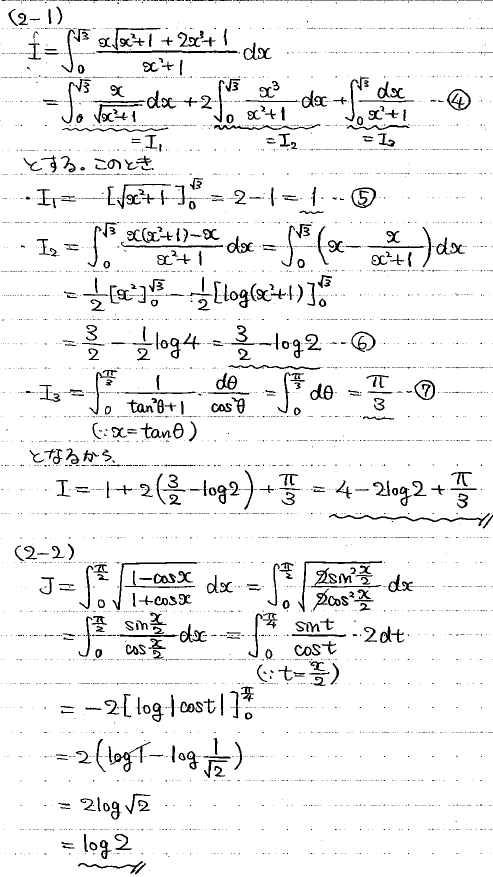 (2-1)
I = ∫₀^√3 (x√(x²+1) + 2x³+1)/(x²+1) dx
= ∫₀^√3 x/√(x²+1) dx + 2∫₀^√3 x³/(x²+1) dx + ∫₀^√3 dx/(x²+1) … ④
=I₁ =I₂ =I₃
とする。このとき
・I₁ = [√(x²+1)]₀^√3 = 2-1 = 1 … ⑤
・I₂ = ∫₀^√3 (x(x²+1)-x)/(x²+1) dx = ∫₀^√3 (x - x/(x²+1)) dx
= 1/2 [x²]₀^√3 - 1/2 [log(x²+1)]₀^√3
= 3/2 - 1/2 log4 = 3/2 - log2 … ⑥
・I₃ = ∫₀^(π/3) 1/(tan²θ+1) · dθ/cos²θ = ∫₀^(π/3) dθ = π/3 … ⑦
(∵x=tanθ)
となるから、
I = 1 + 2(3/2 - log2) + π/3 = 4 - 2log2 + π/3
(2-2)
J = ∫₀^(π/2) √((1-cosx)/(1+cosx)) dx = ∫₀^(π/2) √((2sin² x/2)/(2cos² x/2)) dx
= ∫₀^(π/2) (sin x/2)/(cos x/2) dx = ∫₀^(π/4) sint/cost · 2dt
(∵t=x/2)
= -2[log|cost|]₀^(π/4)
= 2(log1 - log 1/√2)
= 2log√2
= log2